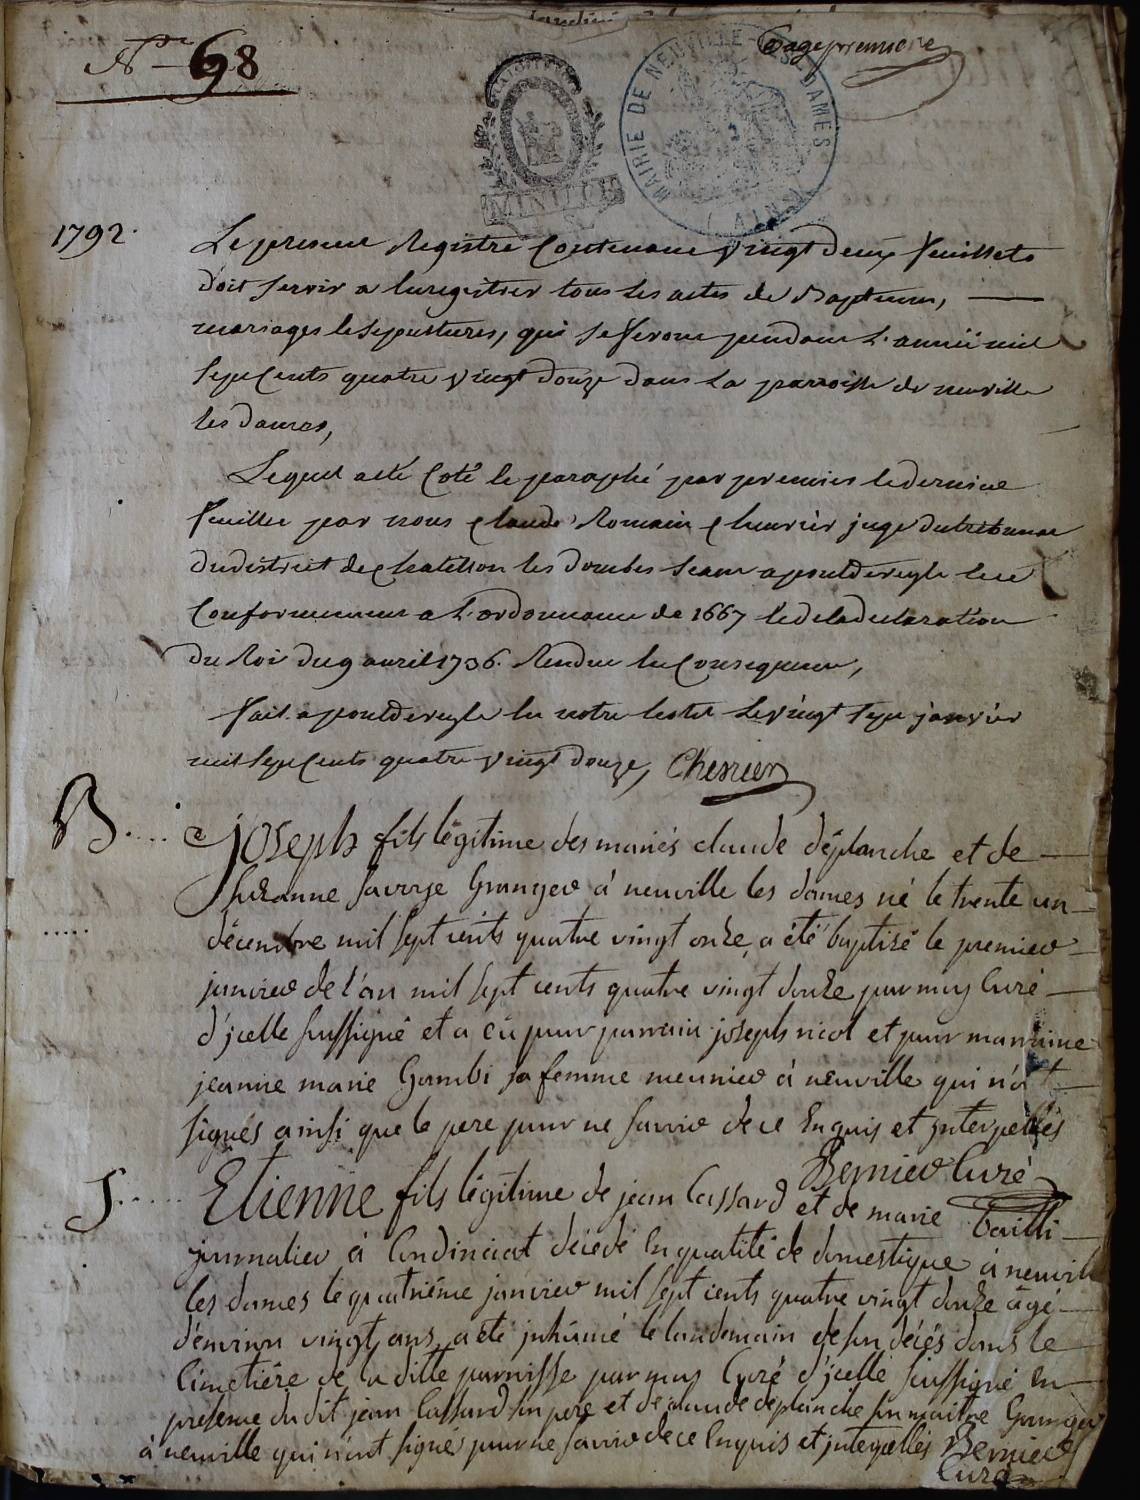 N° 68
page premiere
MAIRIE DE NEUVILLE-LES-DAMES
(AIN)
MINUTE
1792.
Le present Registre Contenant vingt deux feuillets
doit servir a Enregistrer tous les actes de Baptemes,
mariages & sepultures, qui se feront pendant L'année mil
sept Cents quatre vingt douze dans La parroisse de neuville
les dames,
Lequel a été Coté & paraphé par premier & dernier
feuillet par nous Claude Romain Cherrier juge du tribunal
du district de Chatillon les dombes seant a pontdevegle &ce
Conformement a L'ordonnance de 1667 & de la declaration
du Roi du 9 avril 1736. Rendue En Consequence,
fait a pontdevegle En notre hotel Le vingt sept janvier
mil sept Cents quatre vingt douze, Cherrier
B
Joseph fils légitime des mariés claude déplanche et de
Suzanne Savoye Granger à neuville les dames né le trente un
décembre mil sept cents quatre vingt onze, a été baptisé le premier
janvier de l'an mil sept cents quatre vingt douze par moy Curé
d'jcelle sussigné et a eu pour parrain joseph nicol et pour marraine
jeanne marie Gambi sa femme meunier à neuville qui n'ont
signés ainsi que le pere pour ne savoir de ce Enquis et jnterpellés
Bernier Curé
S
Etienne fils légitime de jean Cassard et de marie Bailli
journalier à Condinciat décédé En qualité de domestique à neuville
les dames le quatrième janvier mil sept cents quatre vingt douze âgé
d'environ vingt ans, a été jnhumé le landemain de son décés dans le
Cimetière de la ditte parroisse par moy Curé d'jcelle sussigné En
presence du dit jean Cassard son pere et de claude déplanche son maitre Granger
à neuville qui n'ont signé pour ne savoir de ce Enquis et jnterpellés Bernier
Curé